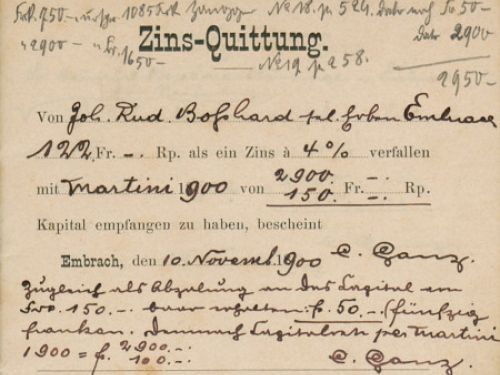 Frk. 750.- urspr. 1085 Frk No 18. p 524. Dato noch Fr. 50-
" 2900 - " Fr. 1650- Dato 2900
No 19 p 258. 2950.-
Zins-Quittung.
Von Joh. Rud. Boßhard sel. Erben Embrach
122 Fr. -. Rp. als ein Zins à 4% verfallen
mit Martini 1900 von 2900. -. Fr. -. Rp.
150.
Kapital empfangen zu haben, bescheint
Embrach, den 10. Novemb. 1900 C. Ganz.
Zugleich als Abzalung an das Capital von
Frk. 150.- baar erhalten: fr. 50.- (fünfzig
franken. Demnach Capitalrest per Martini
1900 = fr. 2900 -.
100 -. C. Ganz.